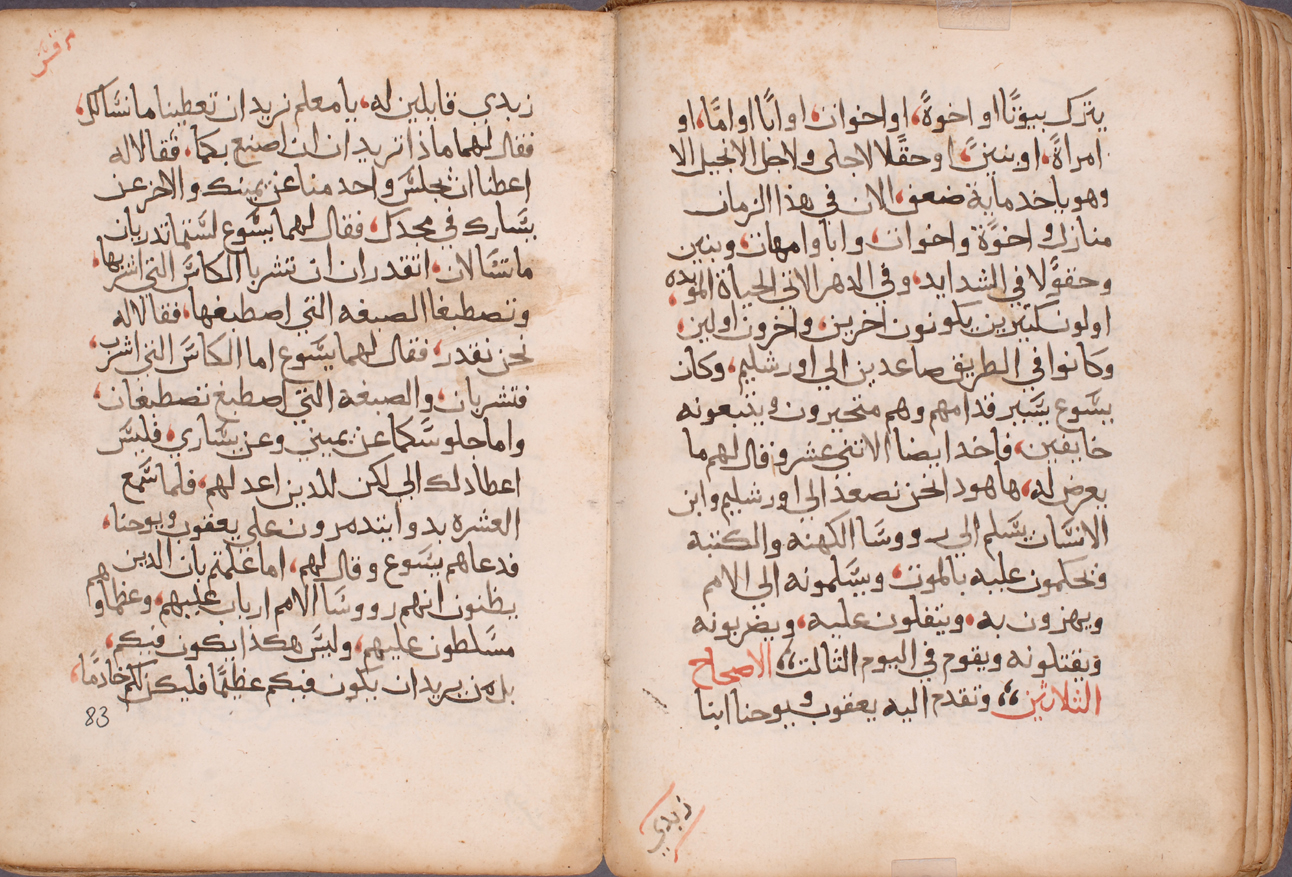 يترك بيوتًا او اخوةً، او اخوات، او ابًا او امًا، او
امراةً، او بنينً، او حقلًا لاجلي ولاجل الانجيل الا
وهو ياخد ماية ضعف، الان في هذا الزمان
منازل واخوًة واخوات، وابا وامهات، وبنين
وحقوًلا في الشدايد، وفي الدهر الاتي الحياة الموبده
اولون كتيرين يكونون اخرين، واخرون اولين،
وكانوا في الطريق صاعدين الي اورشليم، وكان
يسوع يسير قدامهم وهم متحيرون ويتبعونه
خايفين، فاخد ايضا الاتني عشر وقال لهم ما
يعرض له، ها هودا نحن نصعد الي اورشليم وابن
الانسان يسلم الي رووسا الكهنه والكتبه
ويحكمون عليه بالموت، ويسلمونه الي الامم
ويهزون به، ويتفلون عليه، ويضربونه
ويقتلونه ويقوم في اليوم التالت، الاصحاح
التلاتين، وتقدم اليه يعقوب ويوحنا ابنا
زبدي
مرقس
زبدي قايلين له، يا معلم نريد ان تعطينا ما نسالك،
فقال لهما ماذا تريدان ان اصنع بكما، فقالا له
اعطنا ان نجلس واحد منا عن يمينك والاخر عن
يسارك في مجدك، فقال لهما يسوع لستما تدريان
ما تسالان، اتقدران ان تشربا الكاس التي اشربها،
وتصطبغا الصبغه التي اصطبغها، فقالا له
نحن نقدر، فقال لهما يسوع اما الكاس التي اشرب،
فتشربان، والصبغه التي اصطبغ تصطبغان،
واما جلوسكما عن يميني وعن يساري، فليس
اعطا دلك الي لكن للدين اعد لهم، فلما سمع
العشره بدوا يتدمرون علي يعقوب ويوحنا،
فدعاهم يسوع وقال لهم، اما علمتم بان الدين
يظنون انهم رووسا الامم ارباب عليهم، وعظماوهم
مسلطون عليهم، وليس هكدا يكون فيكم،
بل من يريد ان يكون فيكم عظيمًا فليكن لكم خادمًا،
83